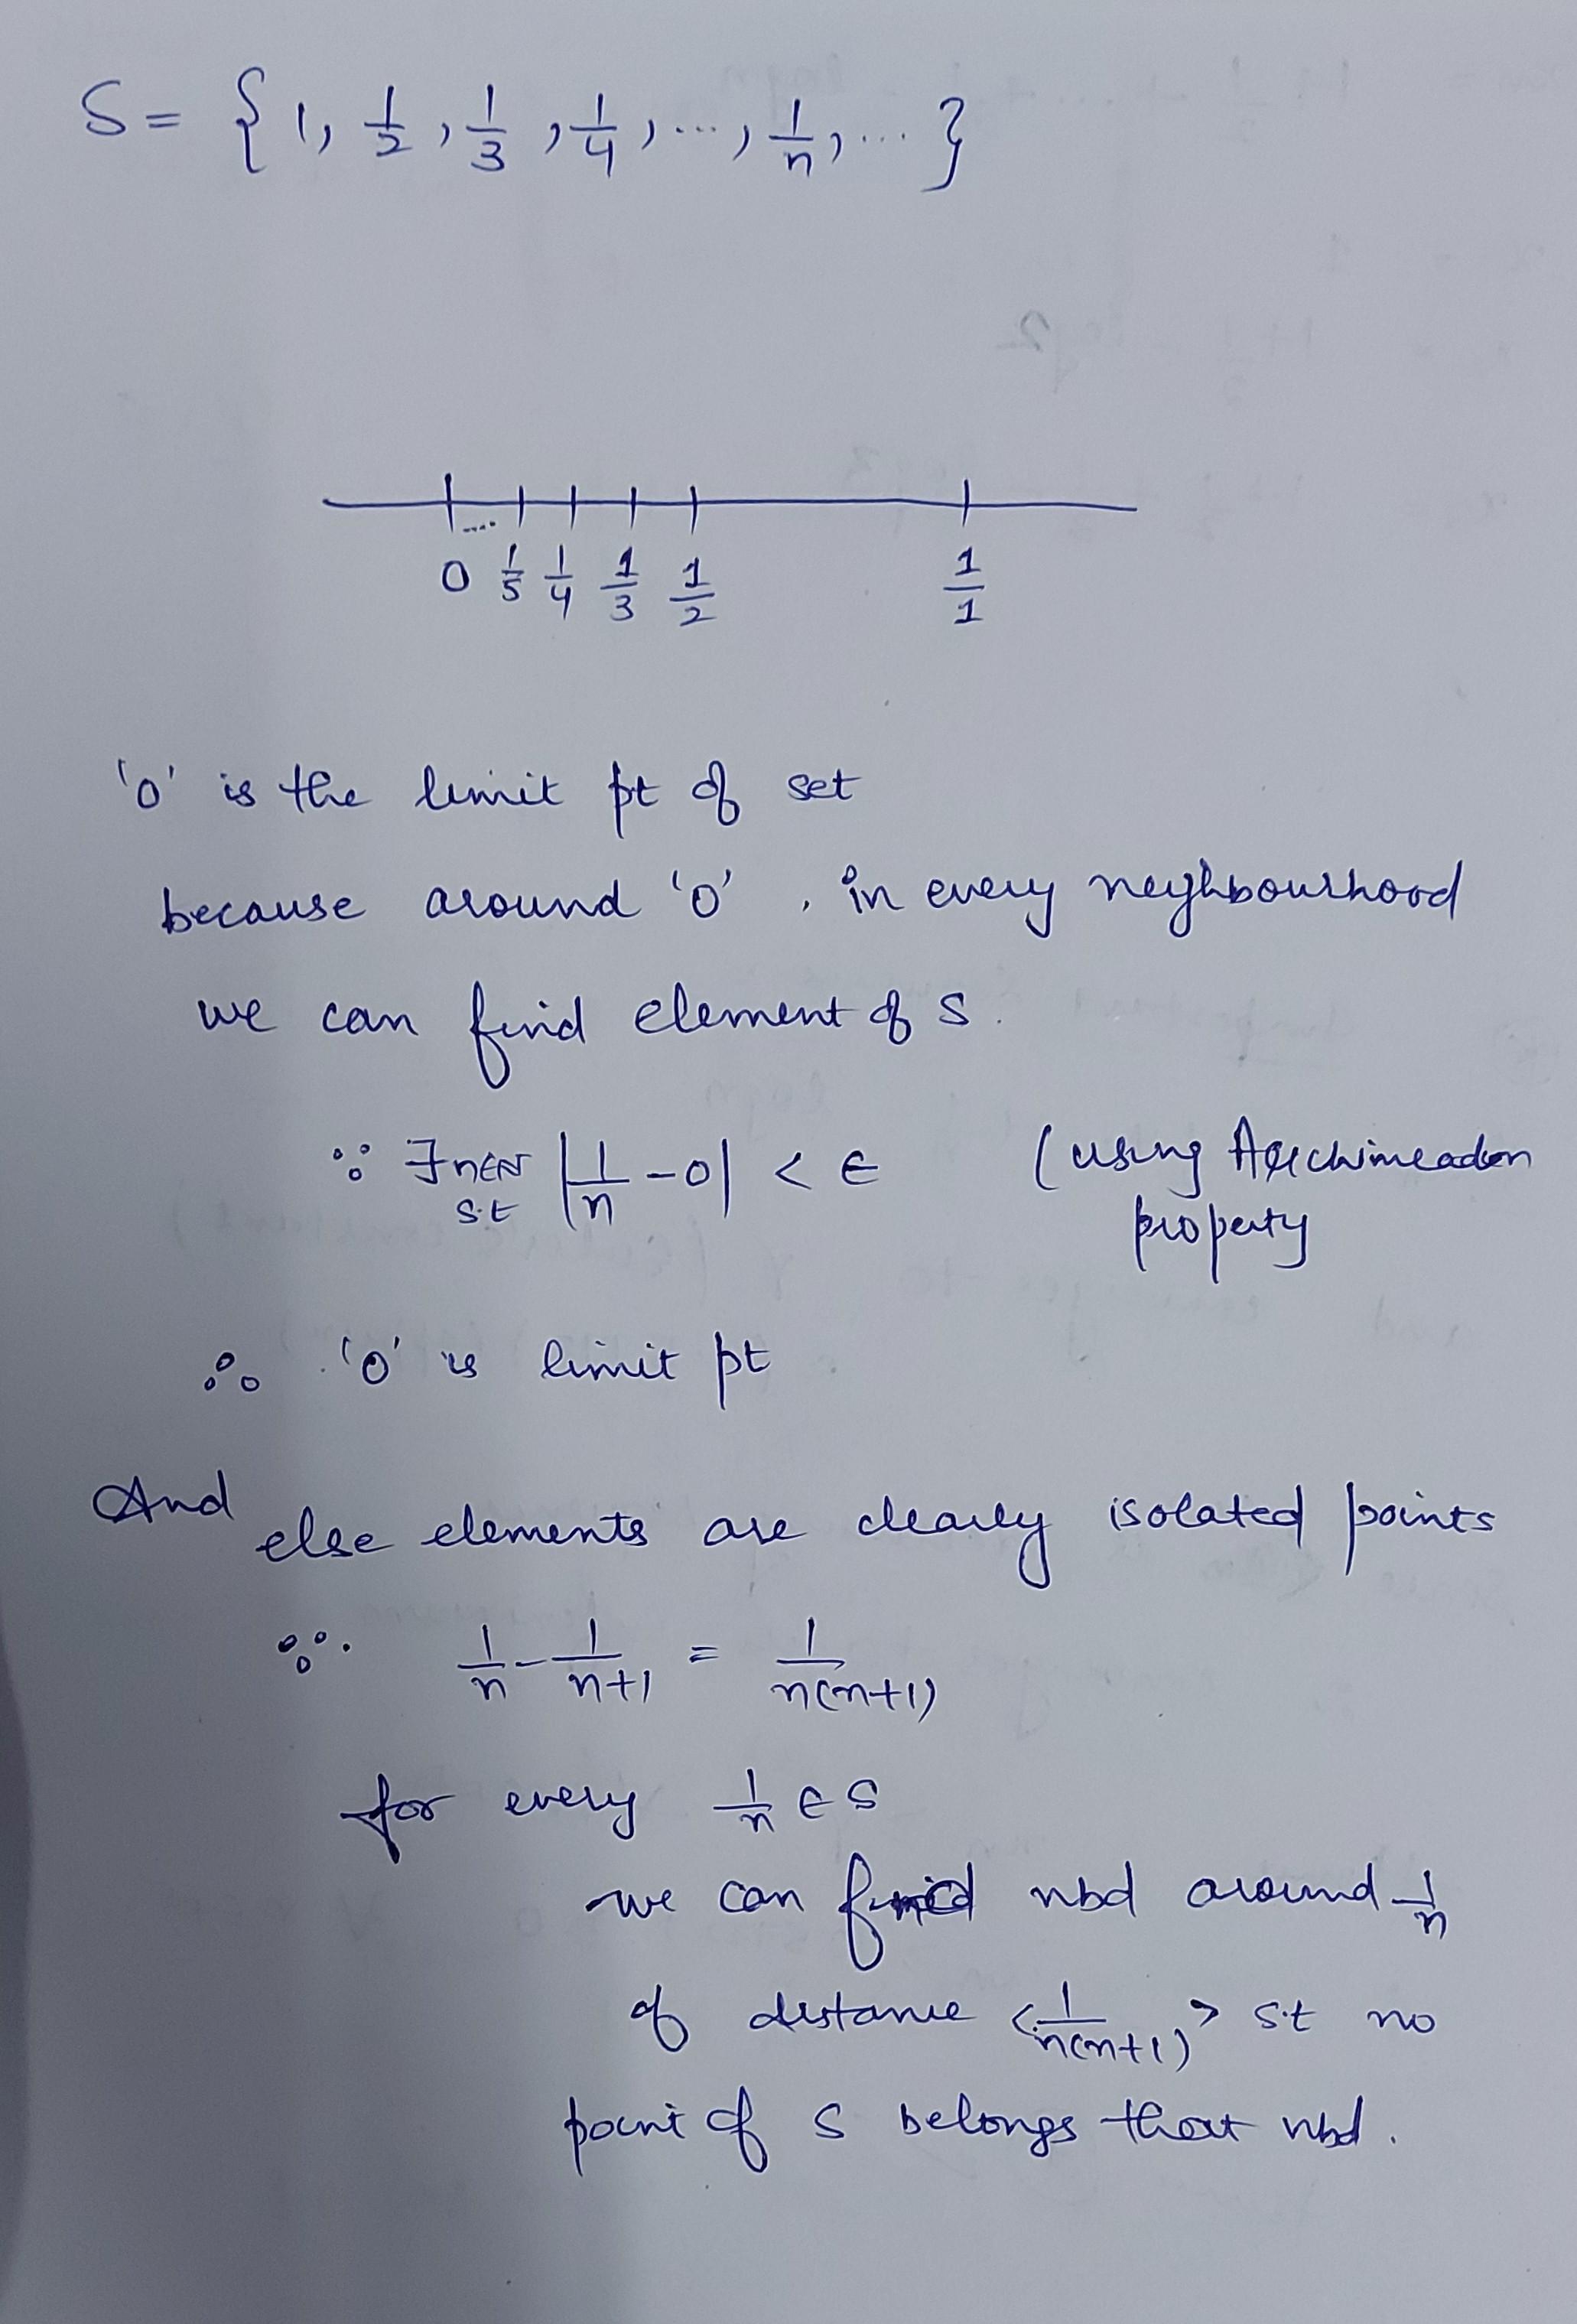 S = { 1, 1/2, 1/3, 1/4, ..., 1/n, ... }
.... 
0 1/5 1/4 1/3 1/2 1/1
'0' is the limit pt of set
because around '0', in every neyhbourhood
we can find element of S.
∵ ∃ n∈N s.t |1/n - 0| < ϵ (using Archimeadon
property
∴ '0' is limit pt
And else elements are clearly isolated points
∵ 1/n - 1/n+1 = 1/n(n+1)
for every 1/n ∈ S
we can find nbd around 1/n
of distance <1/n(n+1)> s.t no
point of S belongs that nbd.